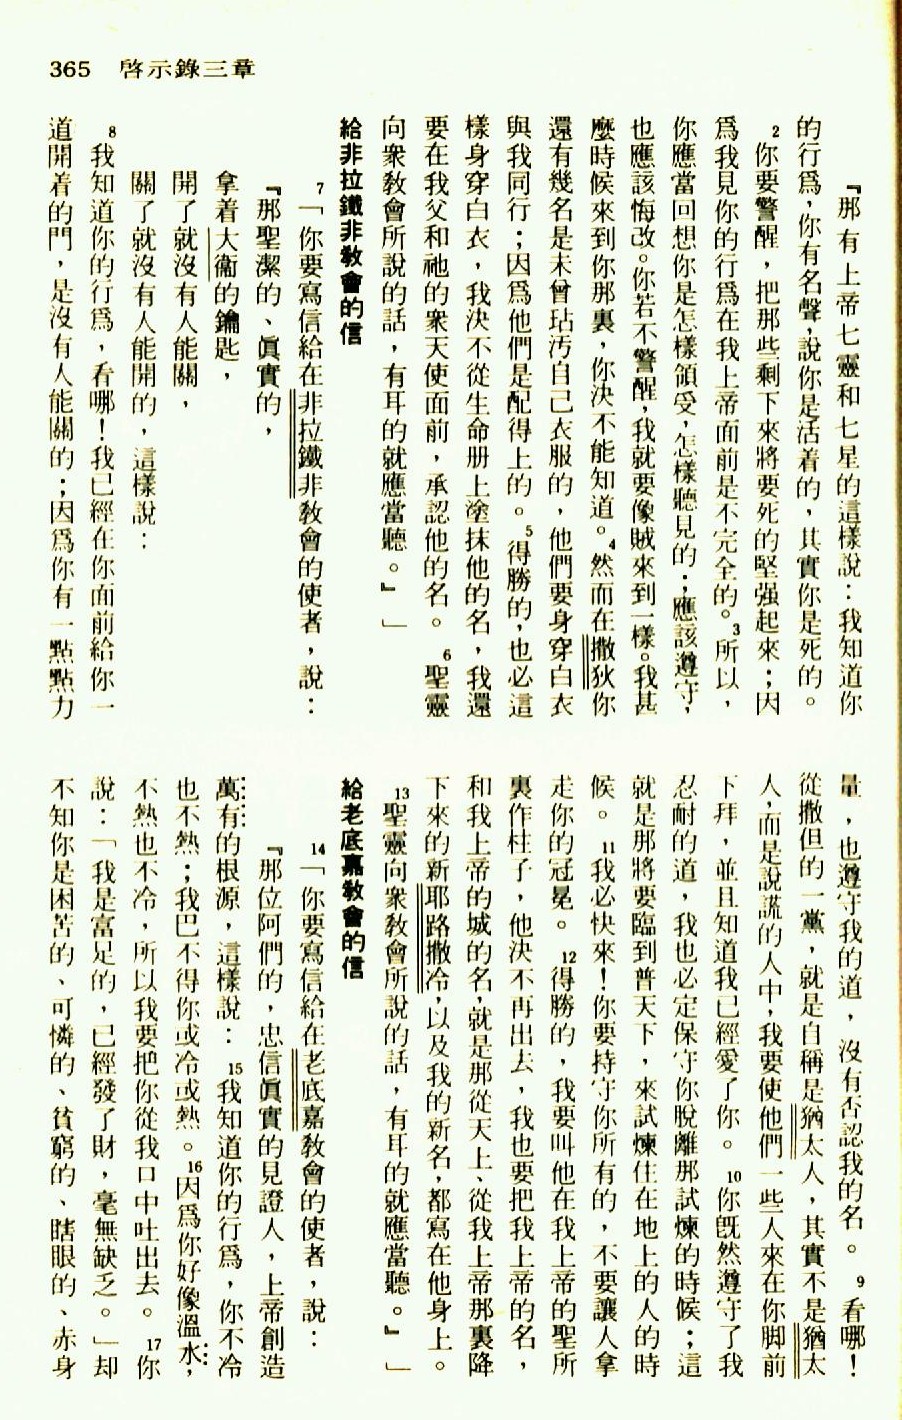 365 啓示錄三章
『那有上帝七靈和七星的這樣說：我知道你
的行爲，你有名聲，說你是活着的，其實你是死的。
2你要警醒，把那些剩下來將要死的堅强起來；因
爲我見你的行爲在我上帝面前是不完全的。3所以，
你應當回想你是怎樣領受，怎樣聽見的；應該遵守，
也應該悔改。你若不警醒，我就要像賊來到一樣。我甚
麼時候來到你那裏，你決不能知道。4然而在撒狄你
還有幾名是未曾玷汚自己衣服的，他們要身穿白衣
與我同行；因爲他們是配得上的。5得勝的，也必這
樣身穿白衣，我決不從生命册上塗抹他的名，我還
要在我父和祂的衆天使面前，承認他的名。6聖靈
向衆敎會所說的話，有耳的就應當聽。』」
給非拉鐵非敎會的信
7「你要寫信給在非拉鐵非敎會的使者，說：
『那聖潔的、眞實的，
拿着大衞的鑰匙，
開了就沒有人能關，
關了就沒有人能開的，這樣說：
8我知道你的行爲，看哪！我已經在你面前給你一
道開着的門，是沒有人能關的；因爲你有一點點力
量，也遵守我的道，沒有否認我的名。9看哪！
從撒但的一黨，就是自稱是猶太人，其實不是猶太
人，而是說謊的人中，我要使他們一些人來在你脚前
下拜，並且知道我已經愛了你。10你旣然遵守了我
忍耐的道，我也必定保守你脫離那試煉的時候；這
就是那將要臨到普天下，來試煉住在地上的人的時
候。11我必快來！你要持守你所有的，不要讓人拿
走你的冠冕。12得勝的，我要叫他在我上帝的聖所
裏作柱子，他決不再出去，我也要把我上帝的名，
和我上帝的城的名，就是那從天上、從我上帝那裏降
下來的新耶路撒冷，以及我的新名，都寫在他身上。
13聖靈向衆敎會所說的話，有耳的就應當聽。』」
給老底嘉敎會的信
14「你要寫信給在老底嘉敎會的使者，說：
『那位阿們的，忠信眞實的見證人，上帝創造
萬有的根源，這樣說：15我知道你的行爲，你不冷
也不熱；我巴不得你或冷或熱。16因爲你好像溫水，
不熱也不冷，所以我要把你從我口中吐出去。17你
說：「我是富足的，已經發了財，毫無缺乏。」却
不知你是困苦的、可憐的、貧窮的、瞎眼的、赤身